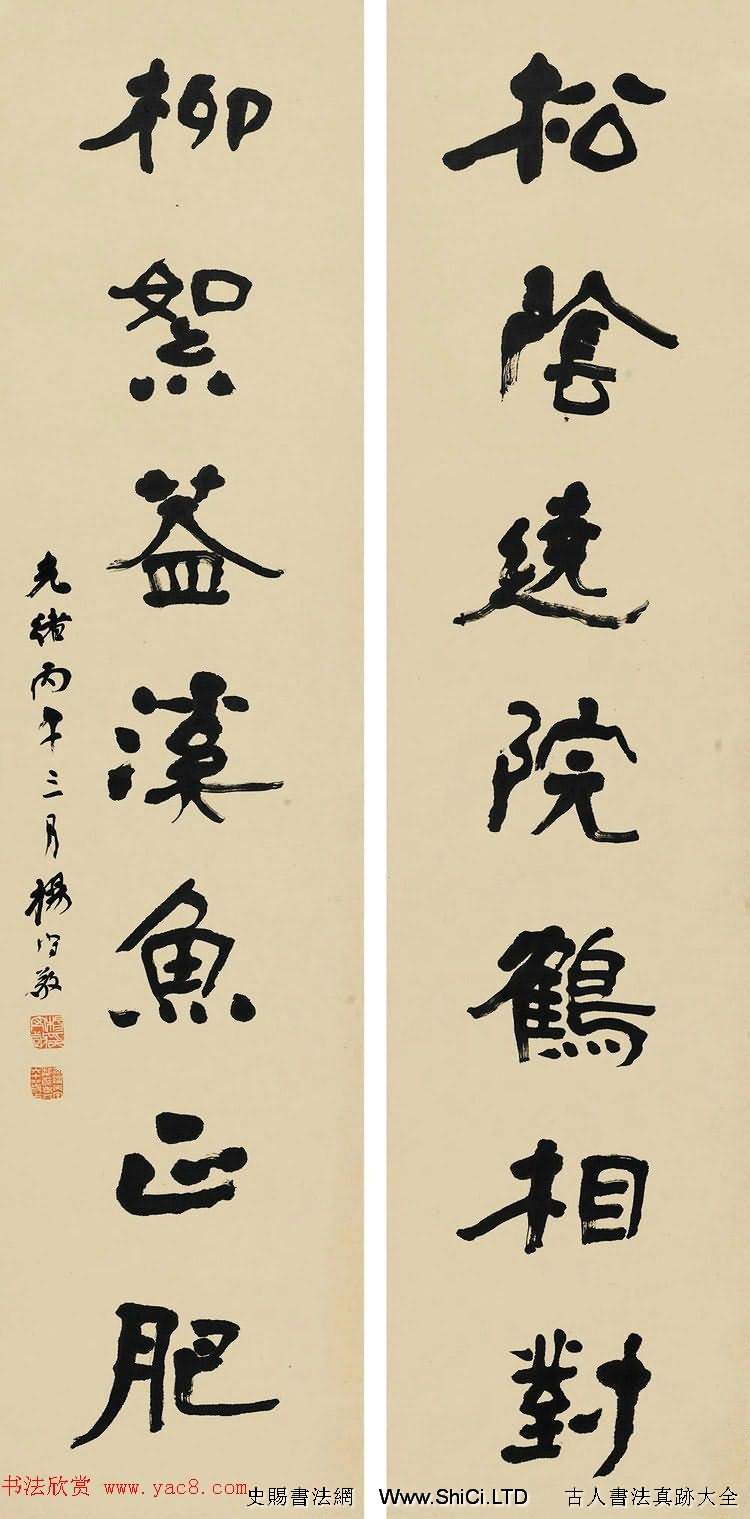 松陰遶院鶴相對
柳絮葢溪魚正肥
光緒丙午三月楊守敬
书法欣赏 www.yac8.com
史賜書法網 Www.ShiCi.LTD 古人書法真跡大全